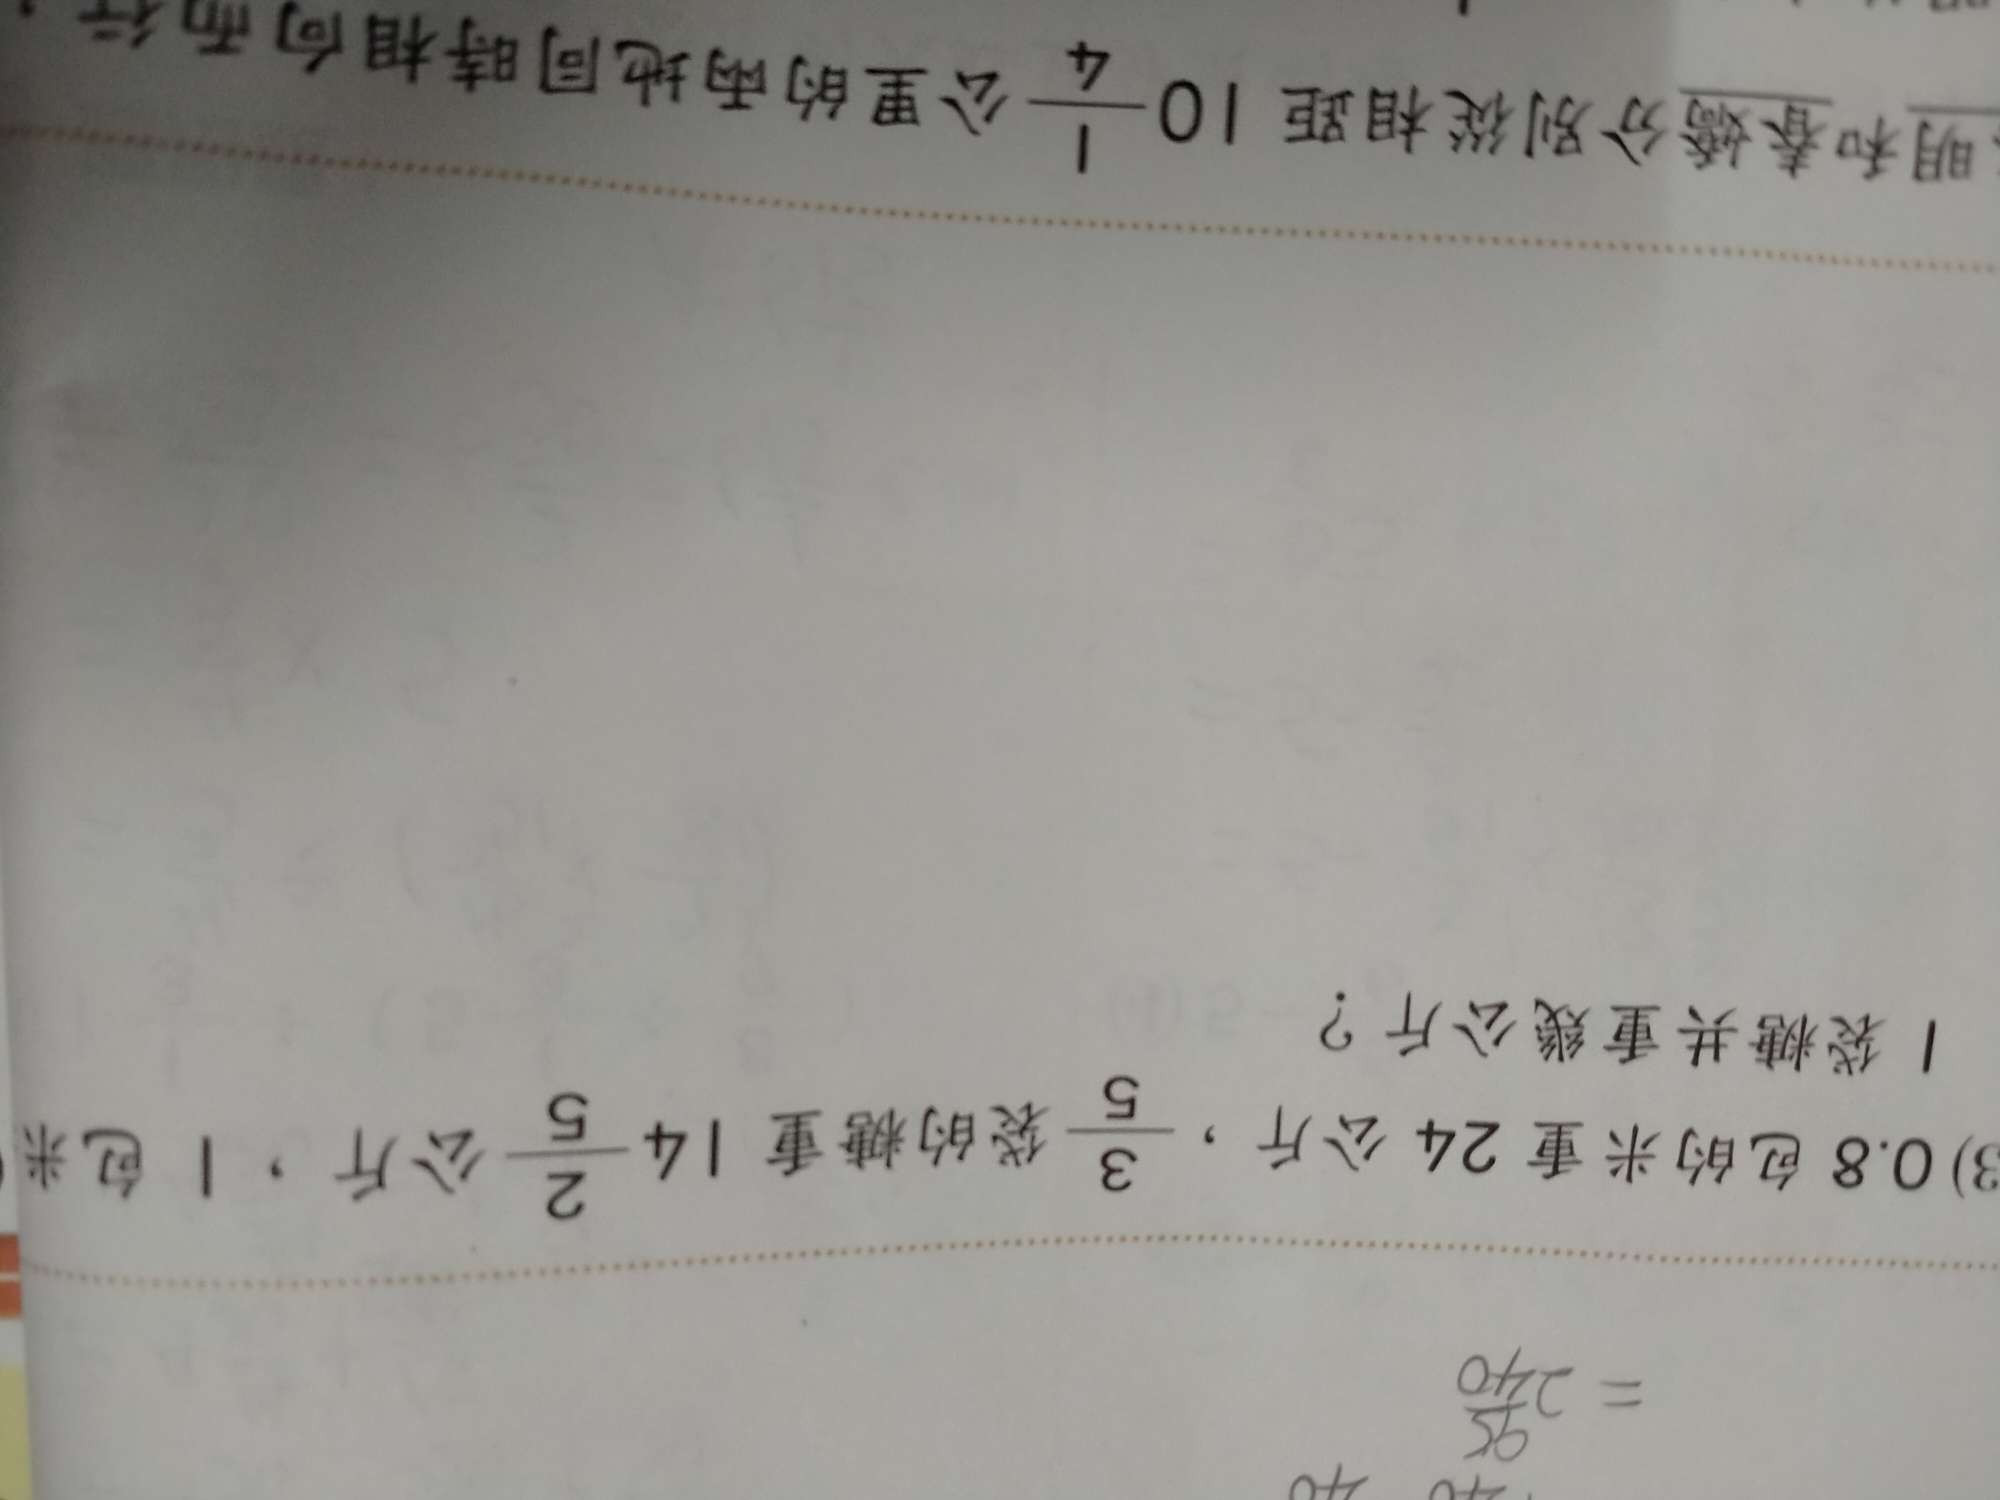 40 40
= 2 95/240
3) 0.8 包的米重 24 公斤，3/5 袋的糖重 14 2/5 公斤，1 包米
1 袋糖共重幾公斤？
明和春嬌分別從相距 10 1/4 公里的兩地同時相向而行，